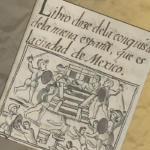 Libro doze de la conquista
de la nueva españa, que es
la ciudad de Mexico.